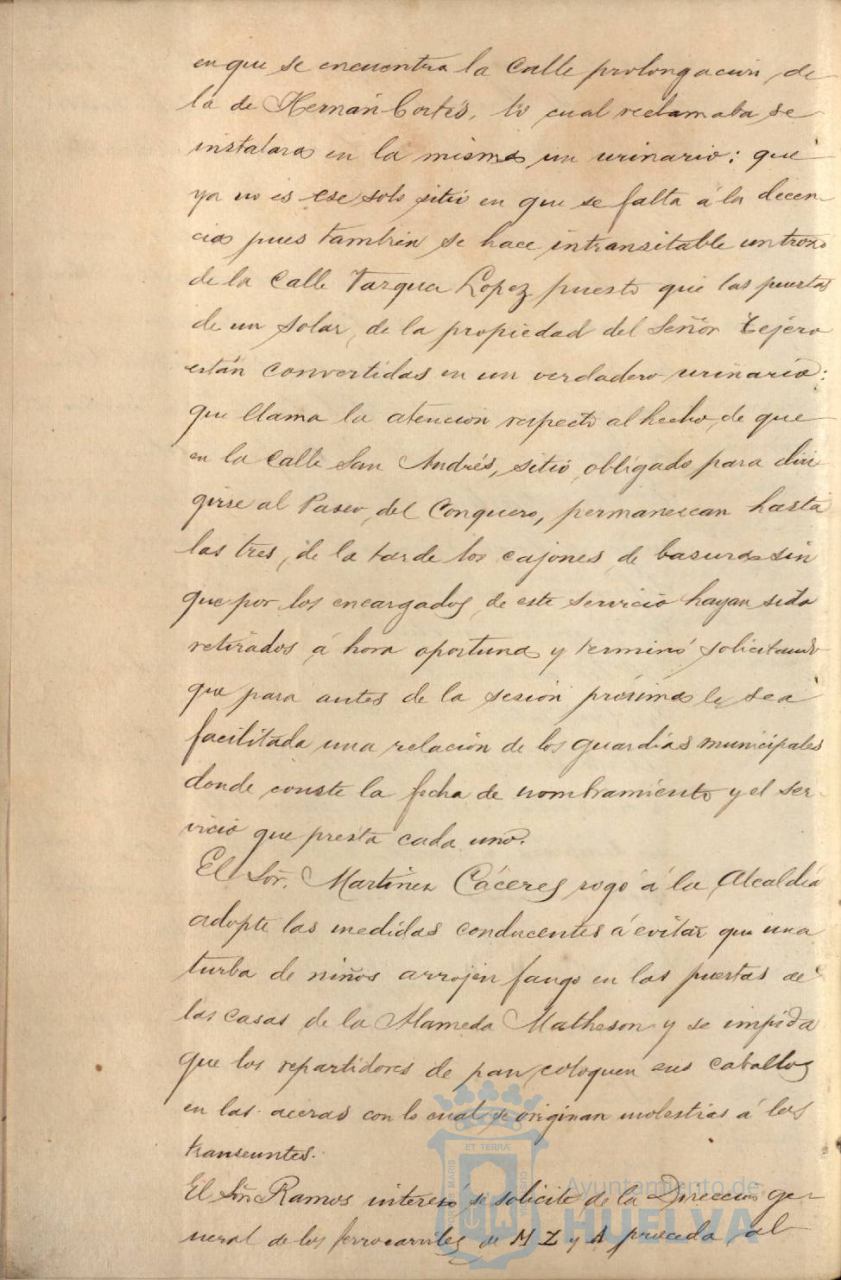 en que se encuentra la Calle prolongación de
la de Hernán Cortés, lo cual reclamaba se
instalara en la misma un urinario: que
ya no es ese solo sitio en que se falta á la decen-
cia pues tambien se hace intransitable un trozo
de la Calle Vazquez Lopez puesto que las puertas
de un solar, de la propiedad del Señor Tejero
están convertidas en un verdadero urinario:
que llama la atencion respecto al hecho, de que
en la Calle San Andrés, sitio obligado para diri
girse al Paseo del Conquero, permanezcan hasta
las tres, de la tarde los cajones de basuras sin
que por los encargados, de este servicio hayan sido
retirados á hora oportuna y terminó solicitando
que para antes de la sesión próxima le sea
facilitada una relación de los guardias municipales
donde conste la fecha de nombramiento y el ser-
vicio que presta cada uno.
El Sr. Martinez Cáceres rogó á la Alcaldia
adopte las medidas conducentes á evitar que una
turba de niños arrojen fango en las puertas de
las casas de la Alameda Matheson y se impida
que los repartidores de pan coloquen sus caballos
en las aceras con lo cual se originan molestias á los
transeuntes.
El Sr. Ramos interesó se solicite de la Direccion ge-
neral de los ferrocarriles de M Z y A proceda al
ET TERRÆ
Ayuntamiento de
HUELVA